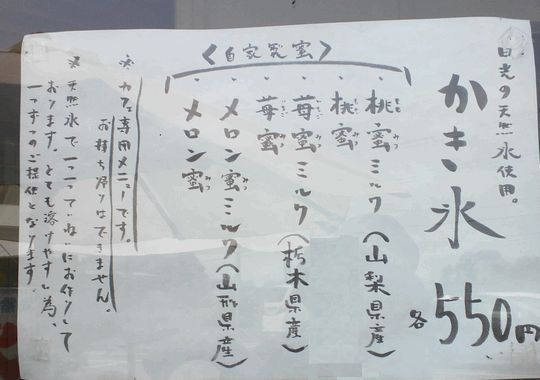 日光の天然氷使用。
かき氷
各550円
〈自家製蜜〉
・桃蜜ミルク(山梨県産)
・桃蜜
・苺蜜ミルク(栃木県産)
・苺蜜
・メロン蜜ミルク(山形県産)
・メロン蜜
※カフェ専用メニューです。
お持ち帰りはできません。
※天然氷で一つ一つていねいにお作りして
おります。とても溶けやすい為、
一つずつのご提供となります。